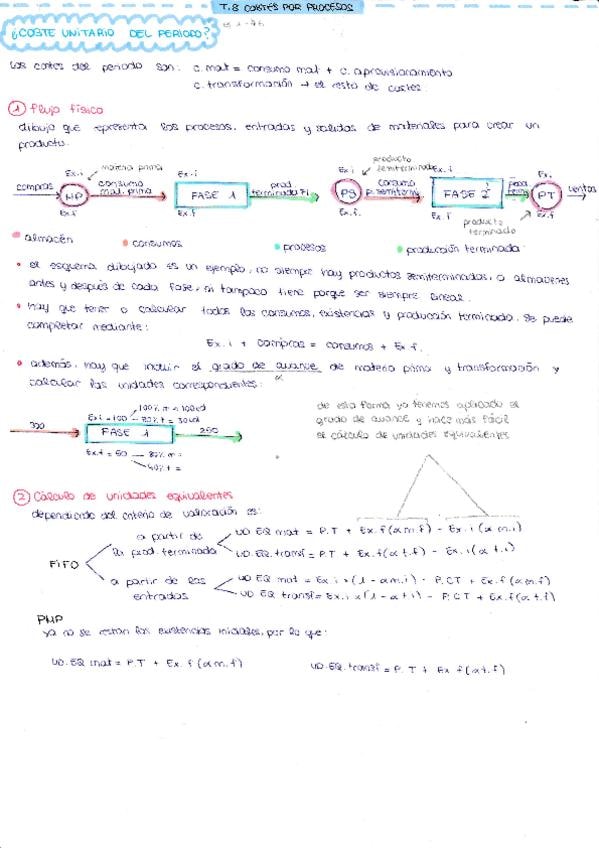 T.8 COSTES POR PROCESOS
¿COSTE UNITARIO DEL PERIODO?
Los costes del periodo son: c.mat = consumo mat + c. aprovisionamiento
c. transformación → el resto de costes.
① Flujo físico
dibujo que representa los procesos, entradas y salidas de materiales para crear un
producto.
compras
Ex.i
materia prima
MP
Ex.f
consumo
mat. prima
Ex.i
FASE 1
Ex.f
prod.
terminada F1
Ex.i
producto
semiterminado
PS
Ex.f.
consumo
p. semiterm
Ex.i
FASE 2
Ex.f
producto
terminado
Ex.
PT
Ex.f
ventas
almacén
consumos
procesos
producción terminada
• el esquema dibujado es un ejemplo, no siempre hay productos semiterminados, o almacenes
antes y después de cada fase, ni tampoco tiene porque ser siempre lineal.
• hay que tener o calcular todos los consumos, existencias y producción terminada. Se puede
completar mediante:
Ex. i + compras = consumos + Ex f.
• además, hay que incluir el grado de avance de materia prima y transformación y
α
calcular las unidades correspondientes:
300
Ex i = 100
100% m = 100 ud
t = 30 ud
FASE 1
250
Ex.f = 50
40% t =
de esta forma ya tenemos aplicado el
grado de avance y hace más fácil
el cálculo de unidades equivalentes
② Cálculo de unidades equivalentes
dependiendo del criterio de valoración es:
FIFO
a partir de
la prod. terminada
UD EQ mat = P.T + Ex. f (α m.f) - Ex. i (α m.i)
UD. EQ. transf = P.T + Ex. f (α t.f) - Ex. i (α t.i)
a partir de las
entradas
UD EQ mat = Ex. i × (1 - α m.i) - P.CT + Ex. f (α m.f)
UD EQ transf = Ex. i × (1 - α t.i) - P.CT + Ex. f (α t.f)
PMP
ya no se restan las existencias iniciales, por lo que:
UD. EQ mat = P.T + Ex. f (α m. f)
UD. EQ transf = P. T + Ex f (α t. f)